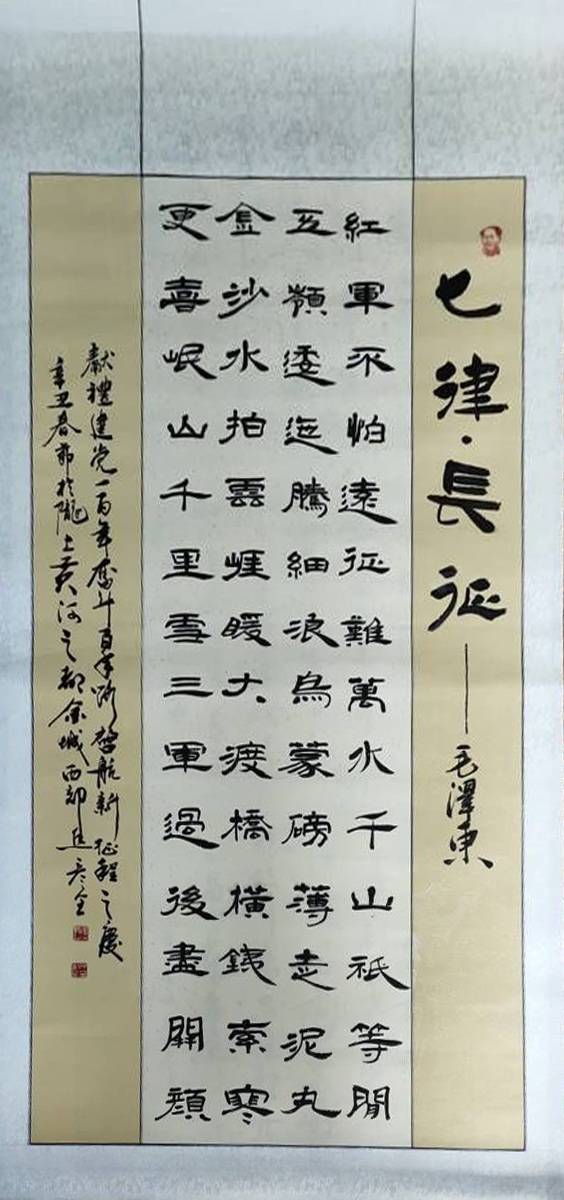 七律·長征——毛澤東
紅軍不怕遠征難萬水千山祇等閒
五嶺逶迤騰細浪烏蒙磅薄走泥丸
金沙水拍雲崖暖大渡橋橫鐵索寒
更喜岷山千里雪三軍過後盡開顏
獻禮建党一百年奮斗百年路啓航新征程之慶
辛丑春節於隴上黃河之都金城西部